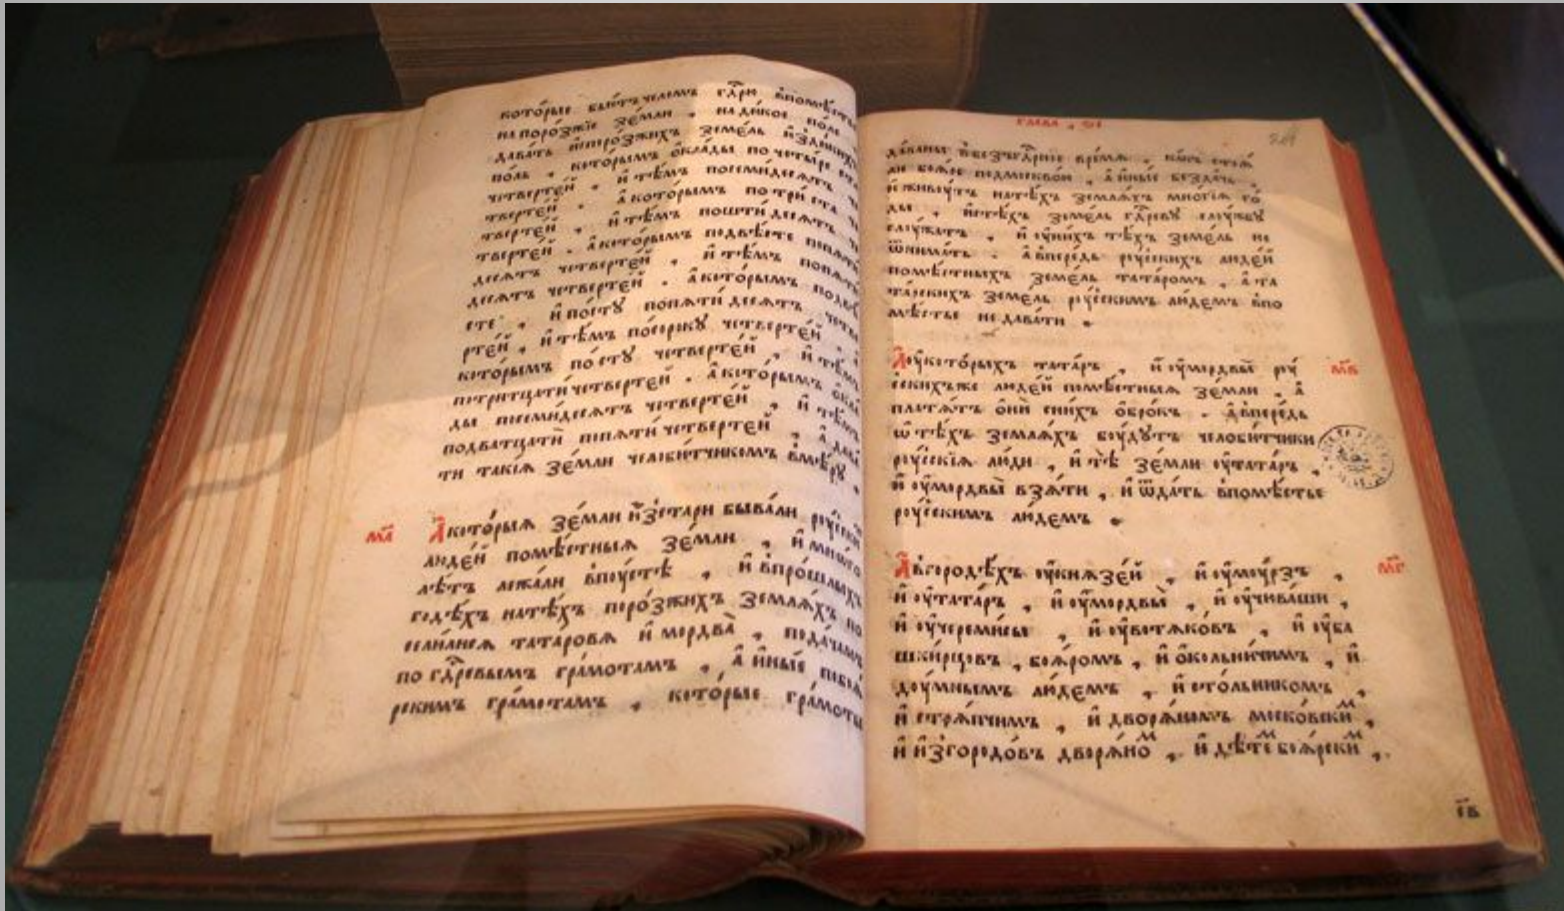 которые бьютъ челомъ гдⷭ҇рю впомѣ́сть
на поро́зжїе зе́мли , на ди́кое по́ле
дава́ть и҆спорозжихъ земе́ль и҆здикихъ
поль , кото́рымъ ѻ҆кла́ды по четы́ре ста
четверте́й , и҆ тѣ́мъ посемидеся́тъ че
тверте́й . а҆ кото́рымъ по три́ ста че
тверте́й , и҆ тѣ́мъ пошти́ деся́тъ че
тверте́й . а҆ кото́рымъ подвѣ́сте попяти
деся́тъ четверте́й , и҆ тѣ́мъ попяти
деся́тъ четверте́й . а҆ кото́рымъ подвѣ́
сте , и҆ по сту̀ попяти́ деся́тъ четве
рте́й , и҆ тѣ́мъ по со́року четверте́й , а҆
кото́рымъ по сту̀ четверте́й , и҆ тѣ́мъ
потри́тцати четверте́й . а҆ кото́рымъ ѻ҆кла
ды посемидеся́тъ четверте́й , и҆ тѣ́мъ
подва́тцати и҆пяти́ четверте́й , а҆ дава
ти такі́я зе́мли челоби́тчикомъ вмѣ́ру .
м҃а А҆ кото́рыя зе́мли и҆зстари быва́ли рꙋ́ски
люде́й помѣ́стныя зе́мли , и҆ мно́гѡ
лѣ́тъ лежа́ли впꙋ́стѣ , и҆ впро́шлыхъ
годѣ́хъ натѣ́хъ поро́зжихъ земля́хъ по
сели́лися татаровя и҆ мордва̀ , пода́чамъ
по гдⷭ҇ревымъ гра́мотамъ , а҆ и҆ны́е побоя
рскимъ гра́мотамъ , кото́рые гра́моты
глава , ѕ҃і
да́ваны въбезъгдⷭ҇рное вре́мя , ка́къ стоя́
ли боя́ре подмоскво́ю , а҆ и҆ны́е безда́чь ,
и҆ живꙋ́тъ натѣ́хъ земля́хъ мно́гїя го́
ды , и҆стѣ́хъ земе́ль гдⷭ҇реву слꙋ́жбꙋ
слꙋ́жатъ , и҆ ᲂу҆ни́хъ тѣ́хъ земе́ль не
ѿнима́ть . а҆ впере́дь рꙋ́сскихъ люде́й
помѣ́стныхъ земе́ль татаромъ , а҆ та
та́рскихъ земе́ль рꙋ́сскимъ лю́демъ впо
мѣ́стье не дава́ти .
А҆ ᲂу҆кото́рыхъ тата́ръ , и҆ ᲂу҆мордвы̀ рꙋ́ м҃в
сскихъже люде́й помѣ́стныя зе́мли , а҆
пла́тятъ ѻ҆нѝ сни́хъ ѻ҆бро́къ . а҆ впере́дь
ѡ҆ тѣ́хъ земля́хъ бꙋ́дꙋтъ челоби́тчики
рꙋ́сскїя лю́ди , и҆ тѣ̀ зе́мли ᲂу҆тата́ръ ,
и҆ ᲂу҆мордвы̀ взя́ти , и҆ ѿда́ть впомѣ́стье
рꙋ́сскимъ лю́демъ .
А҆ вгородѣ́хъ ᲂу҆князе́й , и҆ ᲂу҆мꙋ́рзъ , м҃г
и҆ ᲂу҆тата́ръ , и҆ ᲂу҆мордвы̀ , и҆ ᲂу҆чюва́ши ,
и҆ ᲂу҆череми́сы , и҆ ᲂу҆вотяко́въ , и҆ ᲂу҆ба
шки́рцовъ , боя́ромъ , и҆ ѻ҆кольни́чимъ , и҆
дꙋ́мнымъ лю́демъ , и҆ сто́льникомъ ,
и҆ стря́пчимъ , и҆ дворя́номъ моско́вскиⷨ ,
и҆ и҆згородо́въ дворя́ноⷨ , и҆ дѣ́теⷨ боя́рскиⷨ ,
с҃в